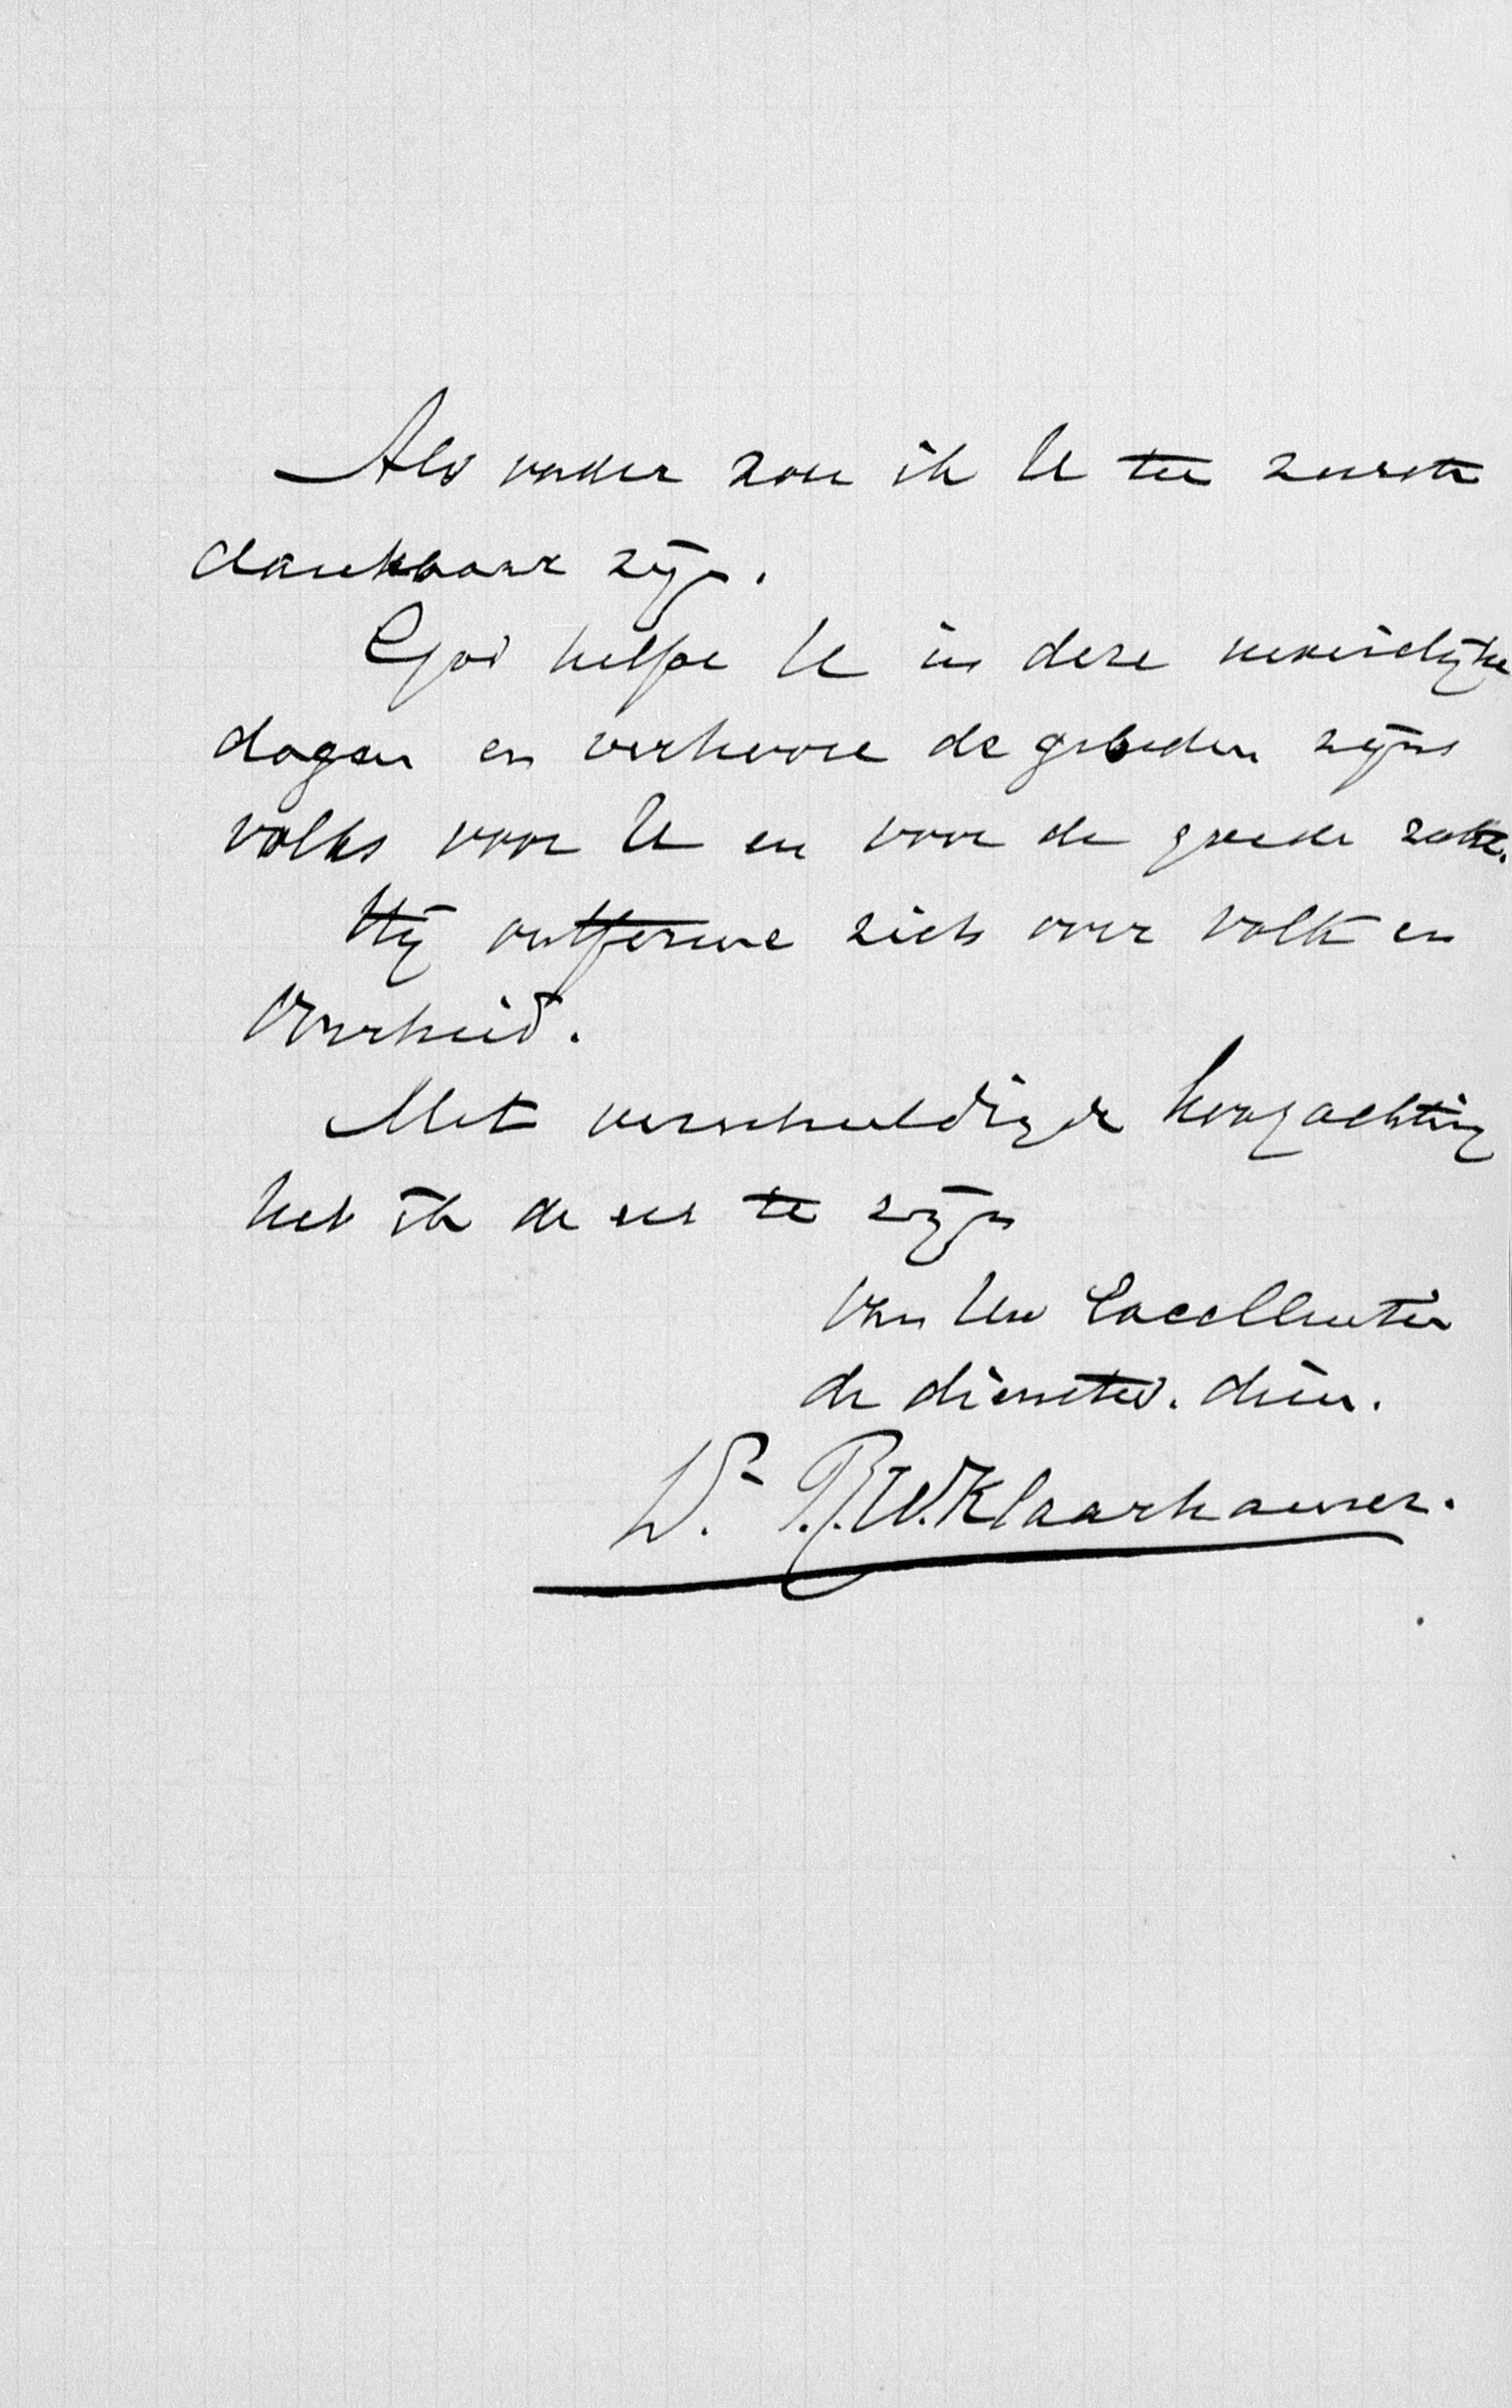 Als vader zou ik U ten zeerste
dankbaar zijn.
God helpe U in deze moeielijke
dagen en verhoore de gebeden zijns
volks voor U en voor de goede zaak.
Hij ontferme zich over volk en
Overheid.
Met verschuldigde hoogachting
heb ik de eer te zijn
van Uw Excellentie
de dienstw. dien.
Dr. P.J.W. Klaarhamer.